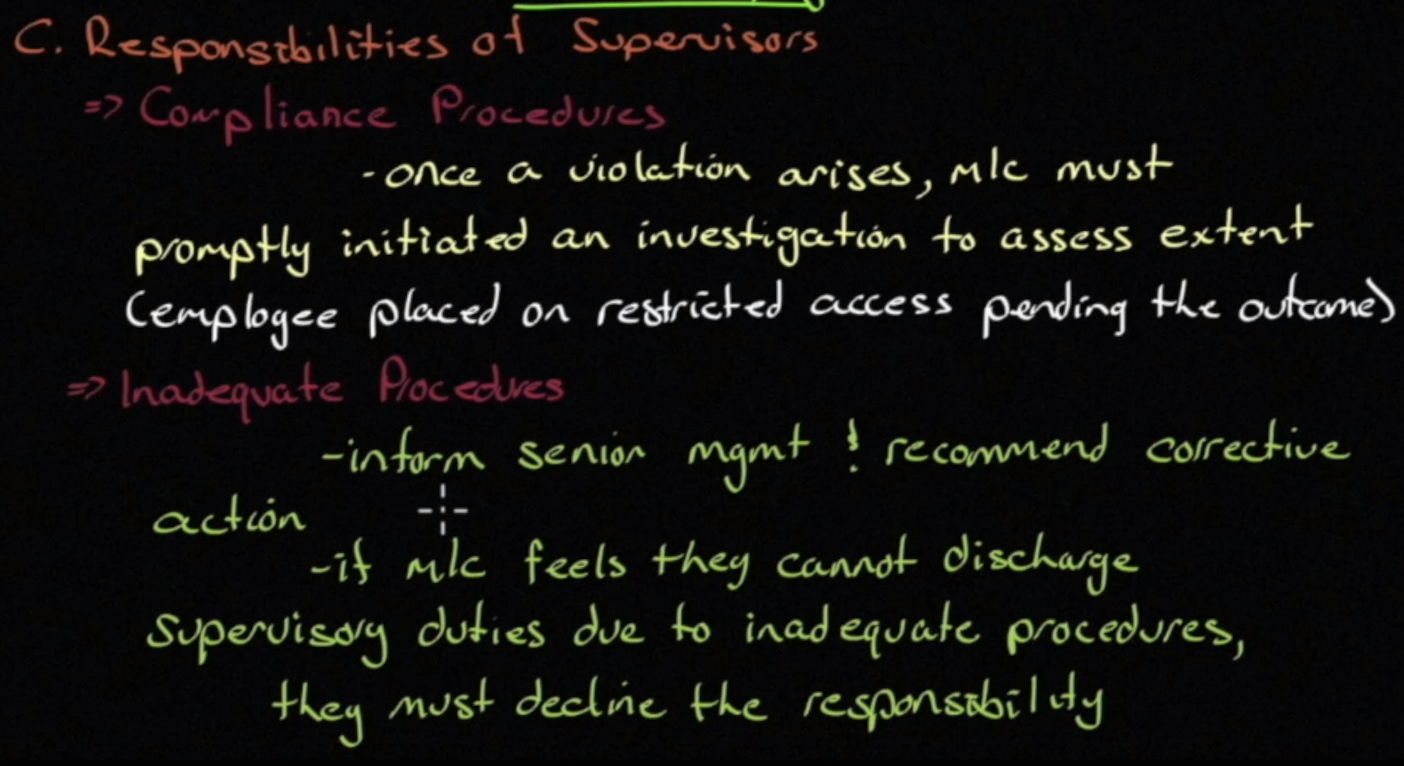 C. Responsibilities of Supervisors
=> Compliance Procedures
- once a violation arises, M/C must
promptly initiated an investigation to assess extent
(employee placed on restricted access pending the outcome)
=> Inadequate Procedures
- inform senior mgmt & recommend corrective
action
- if M/C feels they cannot discharge
supervisory duties due to inadequate procedures,
they must decline the responsibility